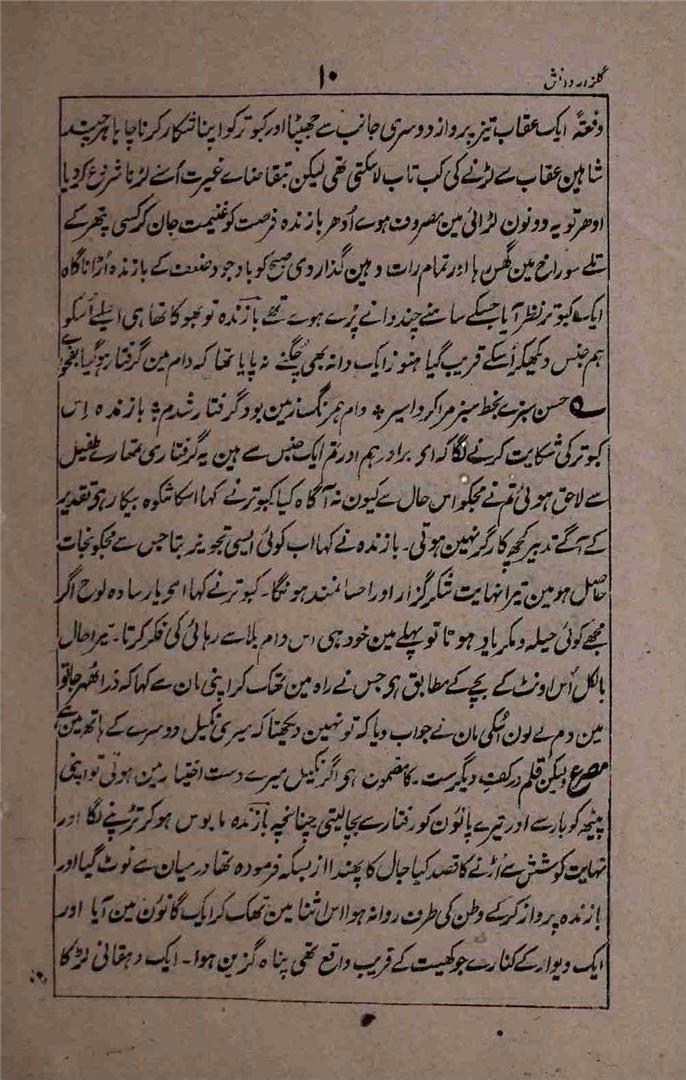 گلزار دانش
۱۰
دفعتہً ایک عقاب تیز پرواز دوسری جانب سے جھپٹا اور کبوتر کو اپنا شکار کرنا چاہا ہرچند
شاہین عقاب سے لڑنے کی کب تاب لاسکتی تھی لیکن بتقاضاے غیرت اُسنے لڑنا شروع کردیا
ادھر تو یہ دونون لڑائی مین مصروف ہوے اُدھر بازندہ فرصت کو غنیمت جان کر کسی پتھر کے
تلے سوراخ مین گھس رہا اور تمام رات وہین گذار دی صبح کو باوجود ضعف کے بازندہ اُڑا ناگاہ
ایک کبوتر نظر آیا جسکے سامنے چند دانے پڑے ہوے تھے بازندہ تو بھوکا تھا ہی اسلیے اُسکو
ہم جنس دیکھکر اُسکے قریب گیا ہنوز ایک دانہ بھی چگنے نہ پایا تھا کہ دام مین گرفتار ہوگیا
حسن سبزے بخط سبز مرا کرد اسیر ؛ دام ہمرنگ زمین بود گرفتار شدم ؛ بازندہ اس
کبوتر کی شکایت کرنے لگا کہ ای برادر ہم اور تم ایک جنس سے ہین یہ گرفتاری تمھارے طفیل
سے لاحق ہوئی تم نے مجکو اس حال سے کیون نہ آگاہ کیا کبوتر نے کہا اسکا شکوہ بیکار ہی تقدیر
کے آگے تدبیر کچھ کارگر نہین ہوتی۔ بازندہ نے کہا اب کوئی ایسی تجویز بتا جس سے مجکو نجات
حاصل ہو مین تیرا نہایت شکر گزار اور احسانمند ہونگا۔ کبوتر نے کہا ای یار سادہ لوح اگر
مجھے کوئی حیلہ و مکر یاد ہوتا تو پہلے مین خود ہی اس دام بلا سے رہائی کی فکر کرتا۔ تیرا حال
بالکل اُس اونٹ کے بچے کے مطابق ہی جس نے راہ مین تھک کر اپنی مان سے کہا کہ ذرا ٹھہر جا تو
مین دم لے لون اُسکی مان نے جواب دیا کہ تو نہین دیکھتا کہ میری نکیل دوسرے کے ہاتھ مین ہے
مصرع ولیکن قلم در کف دیگرست۔ کا مضمون ہی اگر نکیل میرے دست اختیار مین ہوتی تو اپنی
پیٹھ کو بار سے اور تیرے پانون کو رفتار سے بچا لیتی چنانچہ بازندہ مایوس ہو کر تڑپنے لگا اور
نہایت کوشش سے اُڑنے کا قصد کیا جال کا پھندا از بسکہ فرسودہ تھا درمیان سے ٹوٹ گیا اور
بازندہ پرواز کرکے وطن کی طرف روانہ ہوا اس اثنا مین تھک کر ایک گانون مین آیا اور
ایک دیوار کے کنارے جو کھیت کے قریب واقع تھی پناہ گزین ہوا۔ ایک دہقانی لڑکا